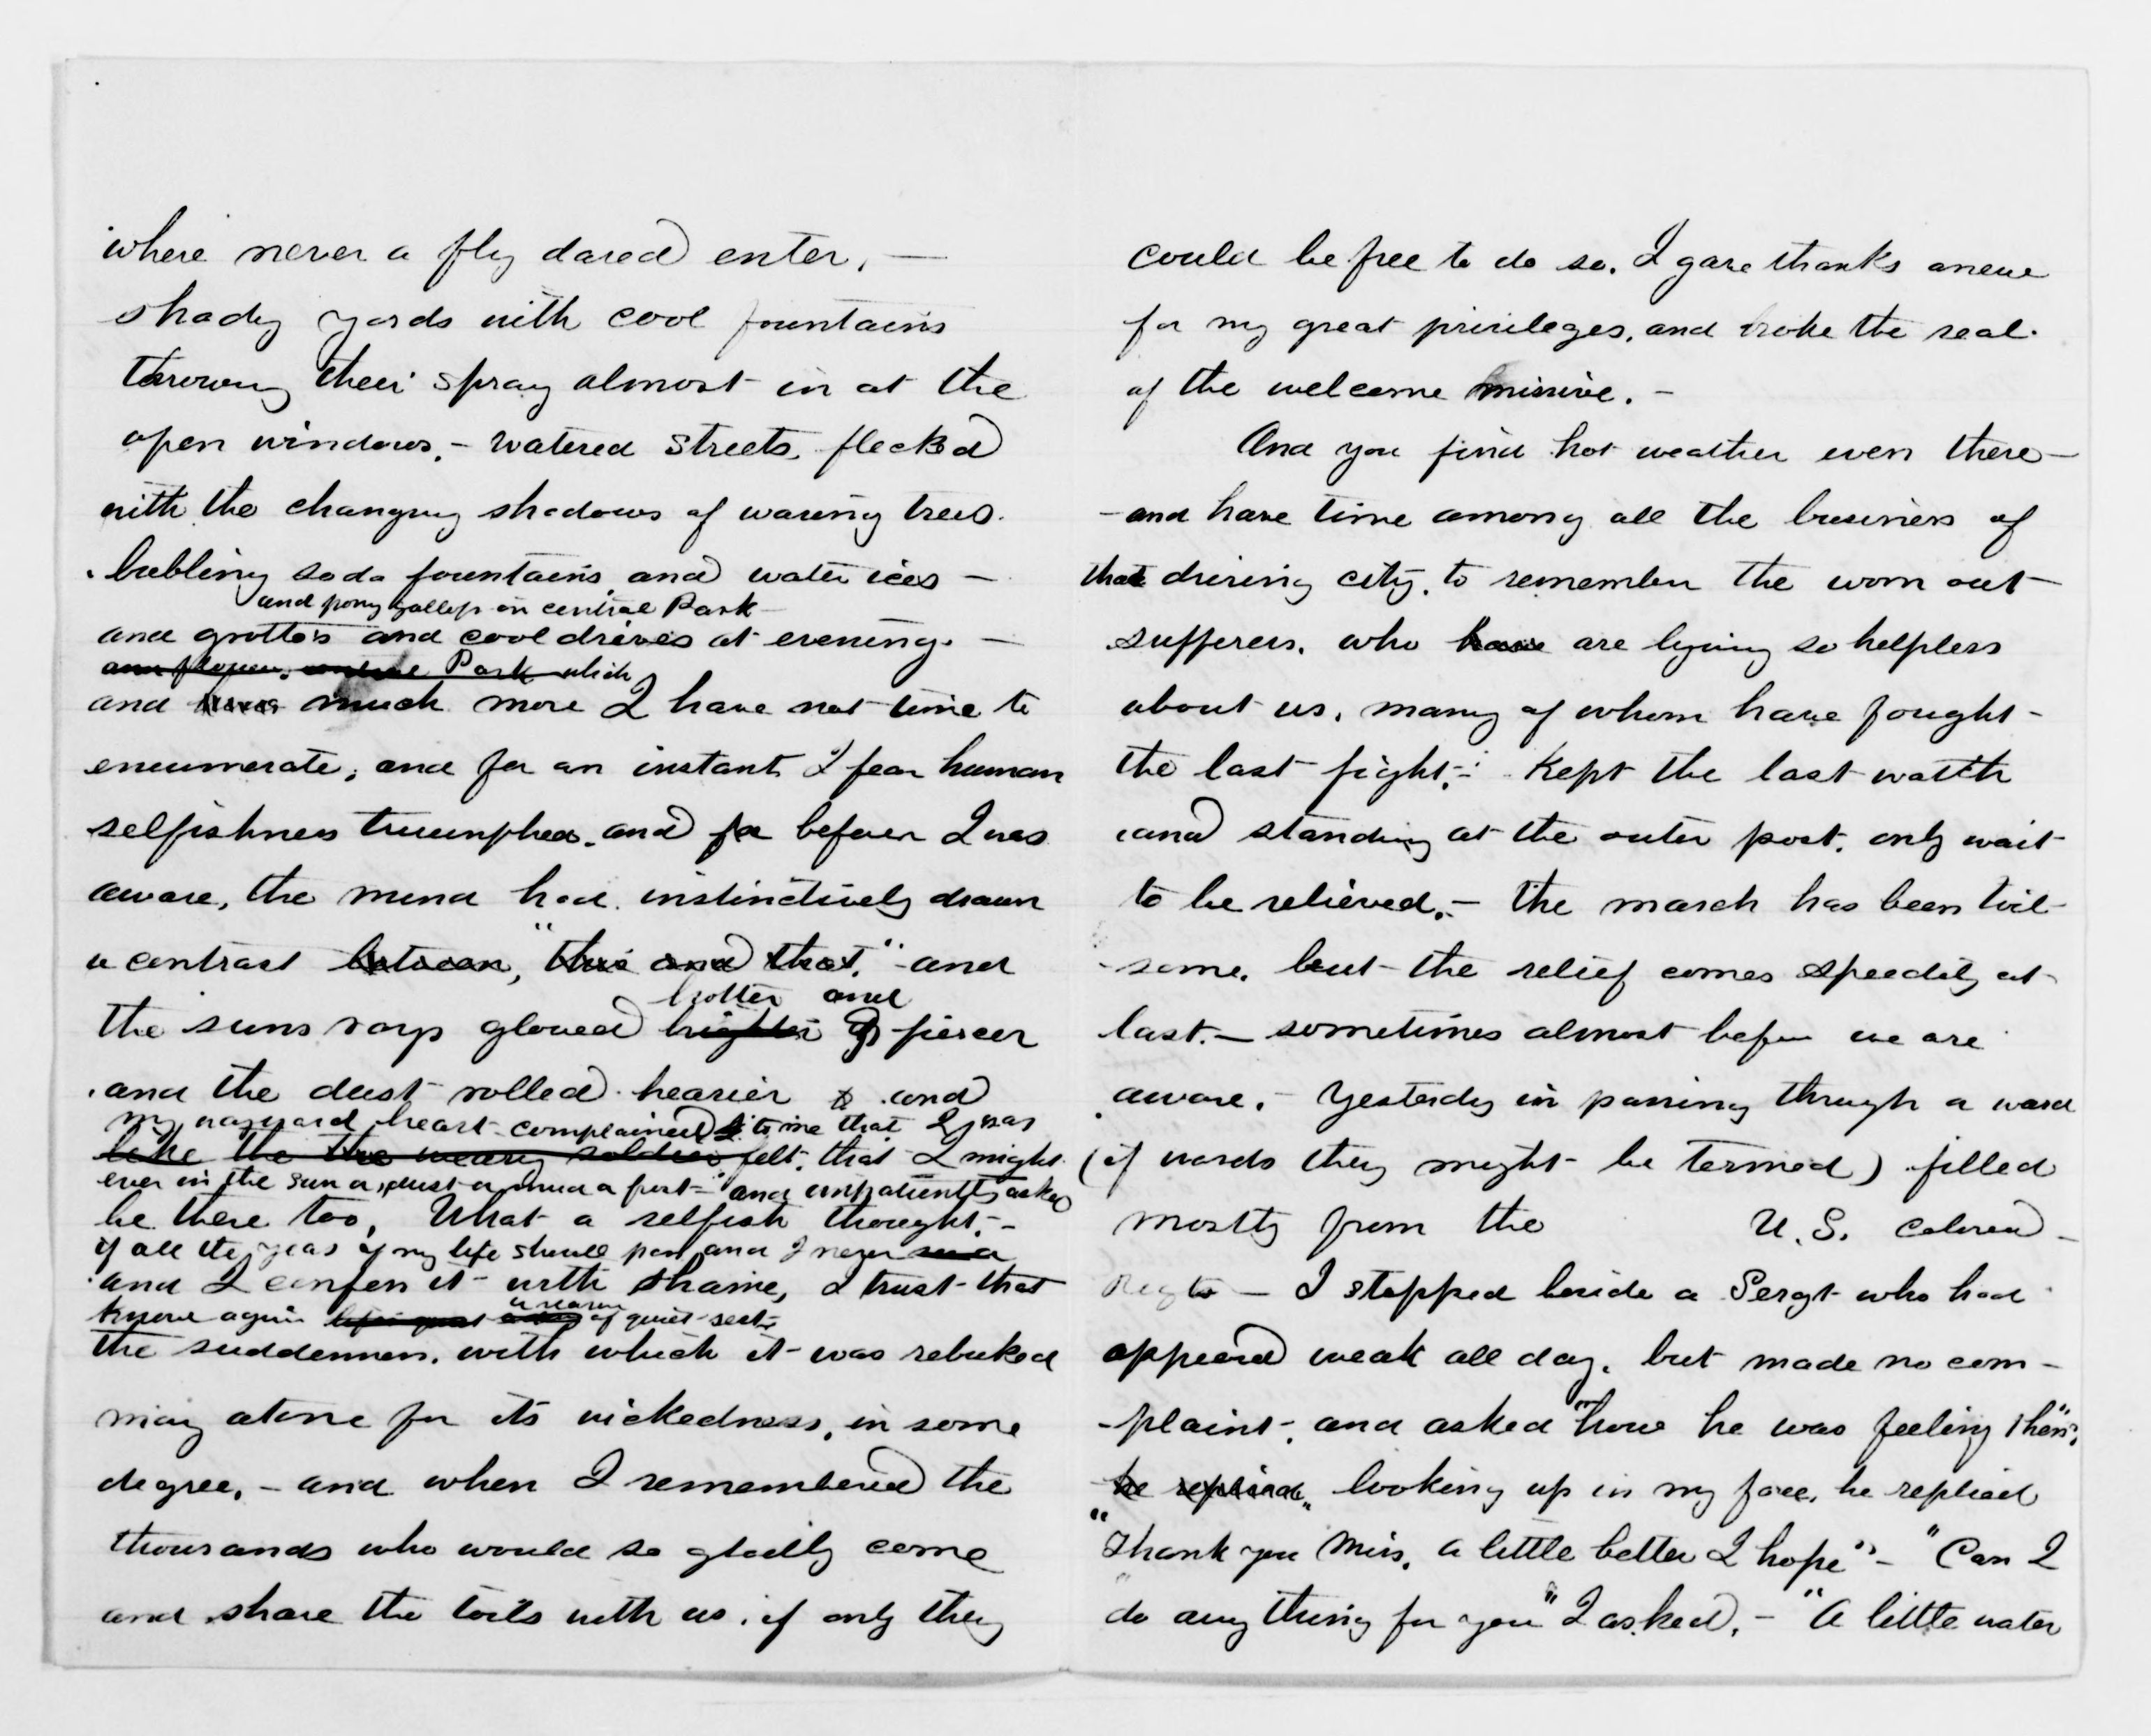 where never a fly dared enter, —
shady yards with cool fountains
throwing their spray almost in at the
open windows, - watered streets, flecked
with the changing shadows of waving trees.
bubling soda fountains, and water ices —
and pony gallops in central Park —
and grottos and cool drives at evening. —
Park which
and much more I have not time to
enumerate, and for an instant I fear human
selfishness triumphed. and for before I was
aware, the mind had instinctively drawn
a contrast between, "this and that," - and
hotter and
the suns rays glowed brighter & fiercer
and the dust rolled heavier & and
my haggard heart complained to me that I was
like the the weary soldier felt, that I might
ever in the sun a dust a mud a part - and impatiently asked
be there too, What a selfish thought. -
if all the years of my life should pass and I never
and I confess it with shame, I trust that
know again of quiet rest -
the suddenness, with which it was rebuked
may atone for its wickedness, in some
degree, - and when I remembered the
thousands who would so gladly come
and share the toils with us, if only they
could be free to do so. I gave thanks anew
for my great privileges, and broke the seal
of the welcome missive. -
And you find hot weather even there —
- and have time among all the business of
that driving city, to remember the worn out
sufferers, who have are lying so helpless
about us, many of whom have fought
the last fight, - Kept the last watch
and standing at the outer post, only wait
to be relieved, - the march has been toil
some, but the relief comes speedily at
last. — sometimes almost before we are
aware, - Yesterday in passing through a ward
(if wards they might be termed) filled
mostly from the U.S. Colored
Regts — I stopped beside a Sergt who had
appeared weak all day, but made no com -
- plaint, and asked "how he was feeling then",
he replied, looking up in my face, he replied
"Thank you Miss, a little better I hope" - "Can I
do any thing for you" I asked, - "A little water